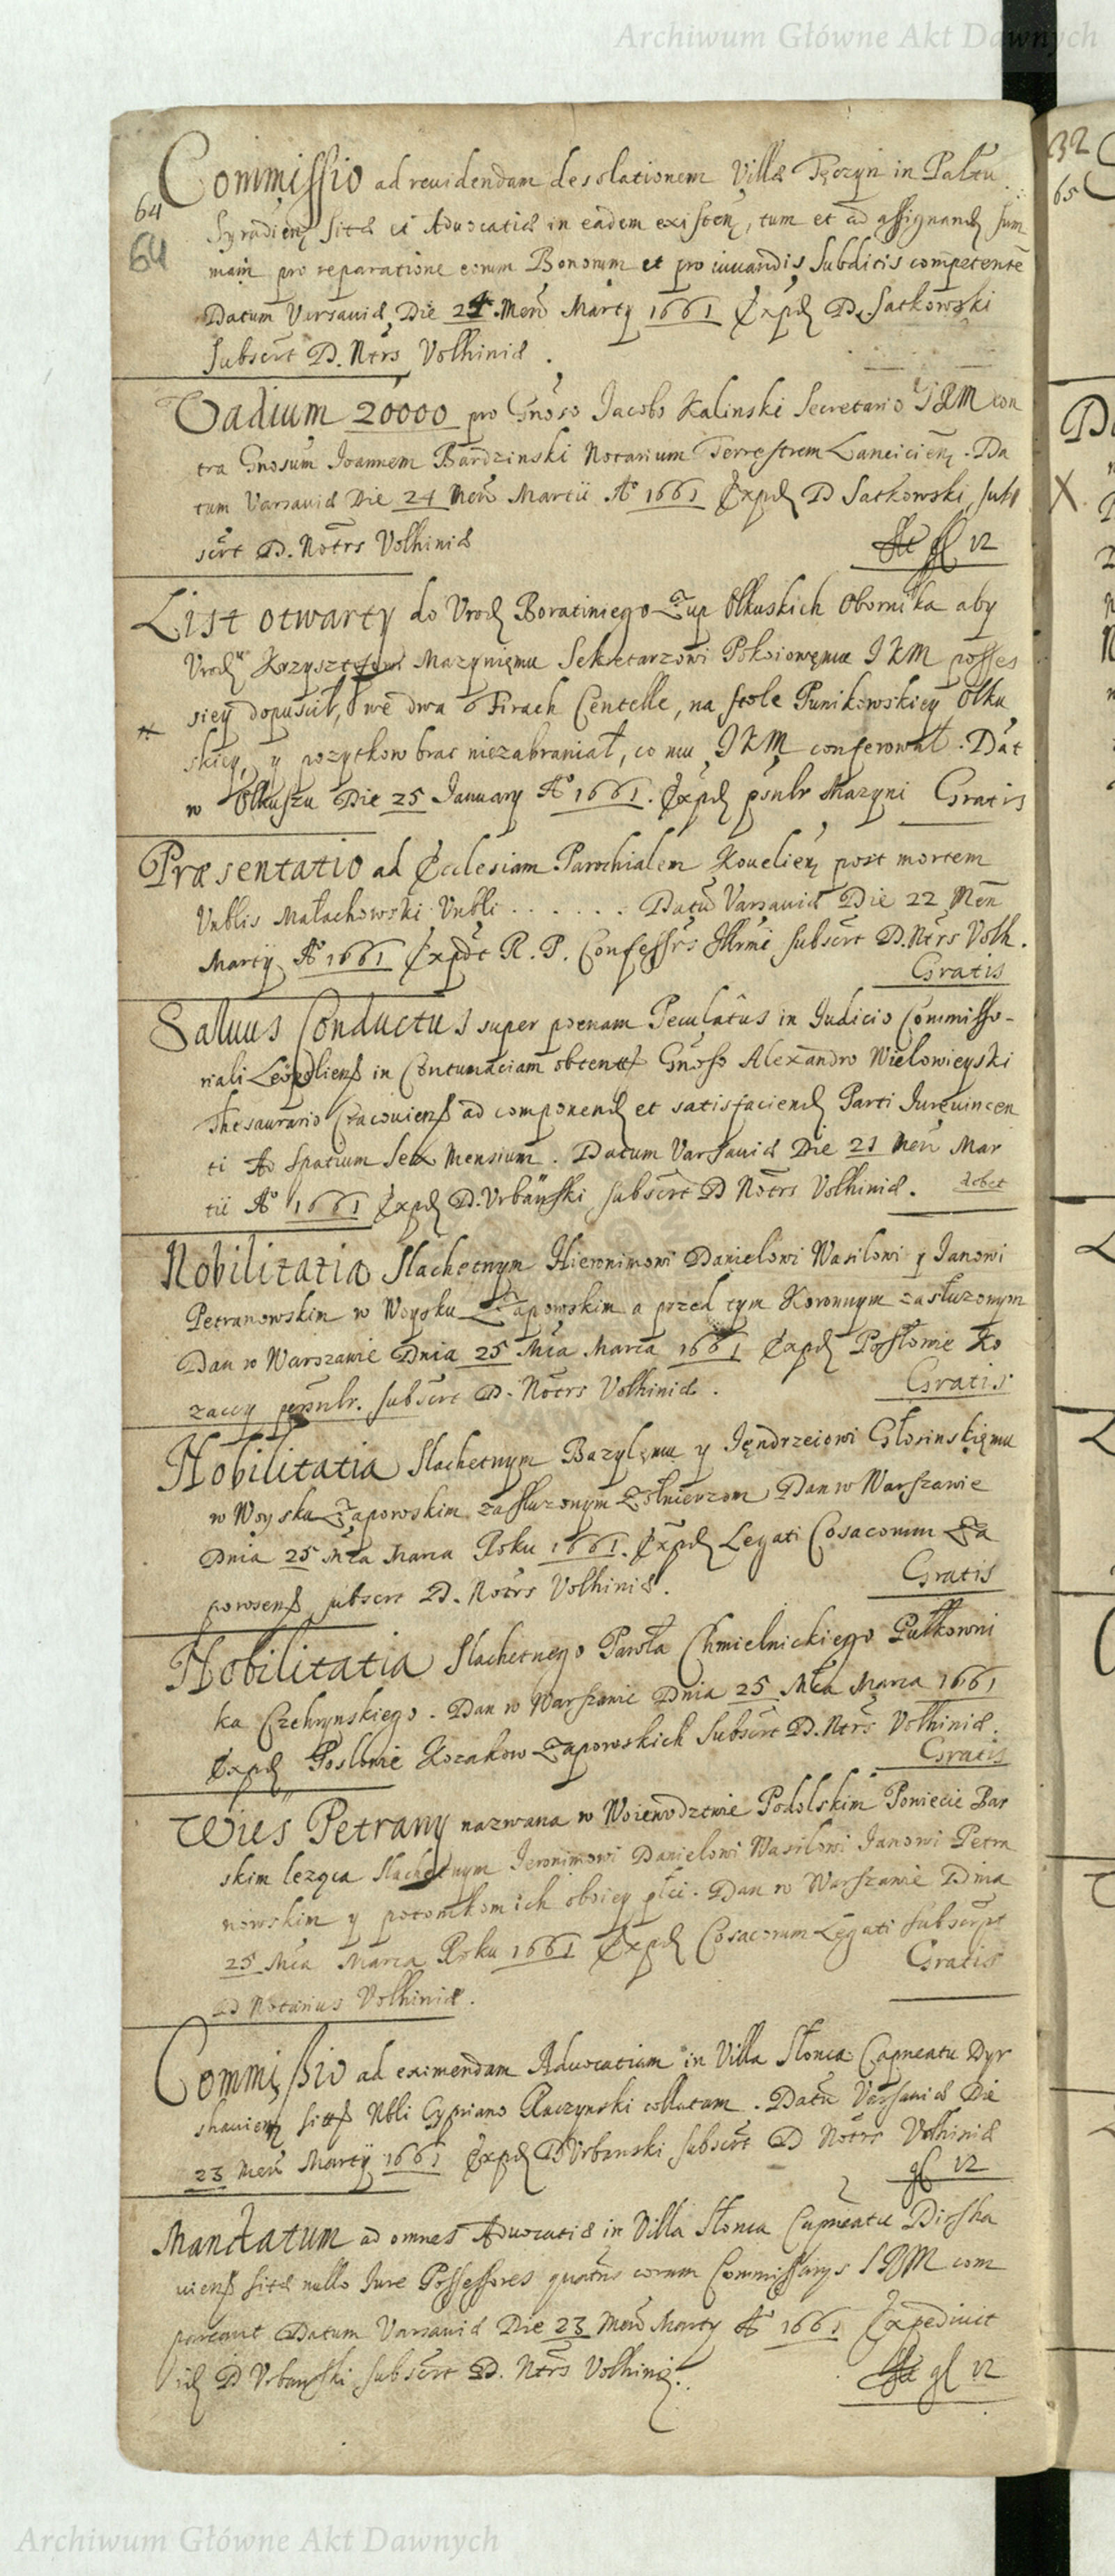 Archiwum Główne Akt Dawnych
Commissio ad reuidendam desolationem Villæ Tęczyn in Paltu
64
Syradien sitæ et Aduocatiæ in eadem existen, tum et ad assignand sum
64
mam pro reparatione eorum Bonorum et pro iuuandis Subditis competente
Datum Varsauiæ Die 24 Men Marty 1661 Exped D. Satkowski
Subscrt D. Ntrs Volhiniæ.
Vadium 20000 pro Gnoso Jacobo Kalinski Secretario SRM con
tra Gnosum Joannem Bardzinski Notarium Terrestrem Lancicien. Da
tum Varsauiæ Die 24 Men Martii Ao 1661 Exped D Satkowski, sub
scrt D. Notrs Volhiniæ
gl 12
List otwarty do Urod Boratiniego Zup Olkuskich Obornika aby
Urod Krzysztofowi Mazyniemu Sekretarzowi Pokoiowemu JKM posses
siey dopuscił, we dwa Firach Centelle, na stole Punikowskiey Olku
skiey, y pozytkow brac niezabraniał, co mu JKM conferował. Dat
w Olkuszu Die 25 January Ao 1661. Exped psnlr Mazyni Gratis
Præsentatio ad Ecclesiam Parochialem Kouelien post mortem
Vnblis Małachowski Vnbli . . . . . . Datu Varsauiæ Die 22 Men
Martÿ Ao 1661 Expdt R. P. Confessrs subscrt D. Ntrs Volh.
Gratis
Saluus Conductus super poenam Peculâtus in Judicio Commisso-
riali Leopolien in Contumaciam obtent Gnoso Alexandro Wielowieyski
Thesaurario Cracouien ad componend et satisfaciend Parti Jureuincen
ti Ad spatium Sex Mensium. Datum Varsauiæ Die 21 Men Mar
tii Ao 1661 Exped D. Urbański subscrt D Notrs Volhiniæ. debet
Nobilitatia Slachetnym Hieronimowi Danielowi Wasilowi y Janowi
Petranowskim w Woysku Zapowskim a przed tym Koronnym zasłuzonym
Dan w Warszawie Dnia 25 Mca Marca 1661 Exped Posłowie Ko
zaccy psnlr. subscrt D. Notrs Volhiniæ.
Gratis
Nobilitatia Slachetnym Bazylemu y Jędrzeiowi Głosinskiemu
w Woysku Zaporoskim zasłuzonym Zołnierzom Dan w Warszawie
Dnia 25 Mca Marca Roku 1661. Exped Legati Cosacorum Za
porosens subscrt D. Notrs Volhiniæ.
Gratis
Nobilitatia Slachetnego Pawła Chmielnickiego Pułkowni
ka Czehrynskiego. Dan w Warszawie Dnia 25 Mca Marca 1661
Exped Posłowie Kozakow Zaporowskich Subscrt D. Ntrs Volhiniæ.
Gratis
Wies Petrany nazwana w Woiewodztwie Podolskim Powiecie Bar
skim leząca Slachetnym Jeronimowi Danielowi Wasilowi Janowi Petra
nowskim y potomkom ich oboiey płci. Dan w Warszawie Dnia
25 Mca Marca Roku 1661 Exped Cosacorum Legati Subscrpt
Gratis
D Notarius Volhiniæ.
Commissio ad eximendam Aduocatiam in Villa Słonca Capneatu Dyr
shauien sit Nbli Cypriano Raczynski collatam. Datu Varsauiæ Die
23 Men Martÿ 1661 Exped D Urbanski subscrt D Notrs Volhiniæ
gl 12
Mandatum ad omnes Aduocatiæ in Villa Słonca Capneatu Dirsha
uien sitæ nullo Jure Possessores quatns coram Commissarys SRM com
pareant Datum Varsauiæ Die 23 Men Marty Ao 1661 Expediuit
id D Urbanski subscrt D. Ntrs Volhiniæ.
gl 12
32
65
Archiwum Główne Akt Dawnych